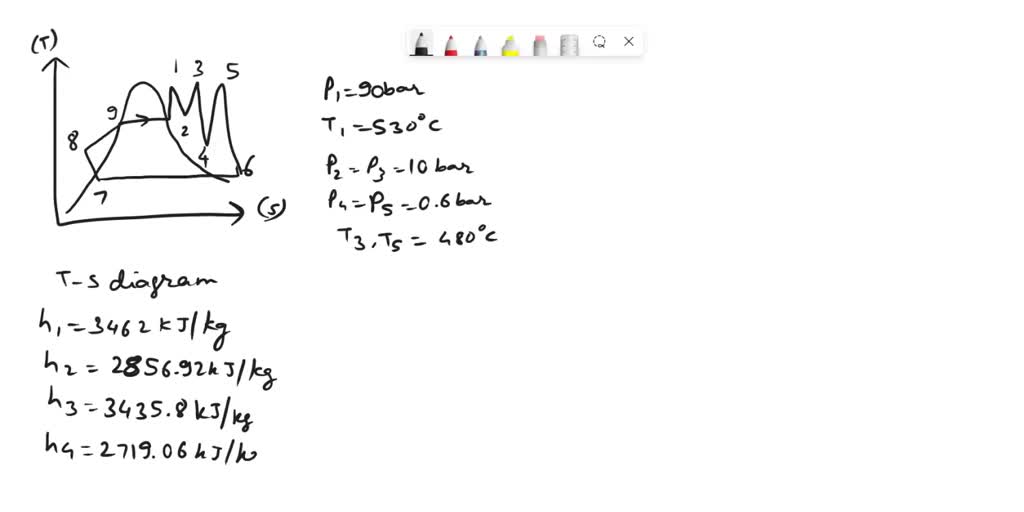 (T)
1 3 5
9
8
2
4
6
7
(S)
P₁=90bar
T₁=530°C
P₂=P₃=10 bar
P₄=P₅=0.6bar
T₃,T₅=480°C
T-S diagram
h₁=3462 kJ/kg
h₂=2856.92kJ/kg
h₃=3435.8kJ/kg
h₄=2719.06 kJ/k